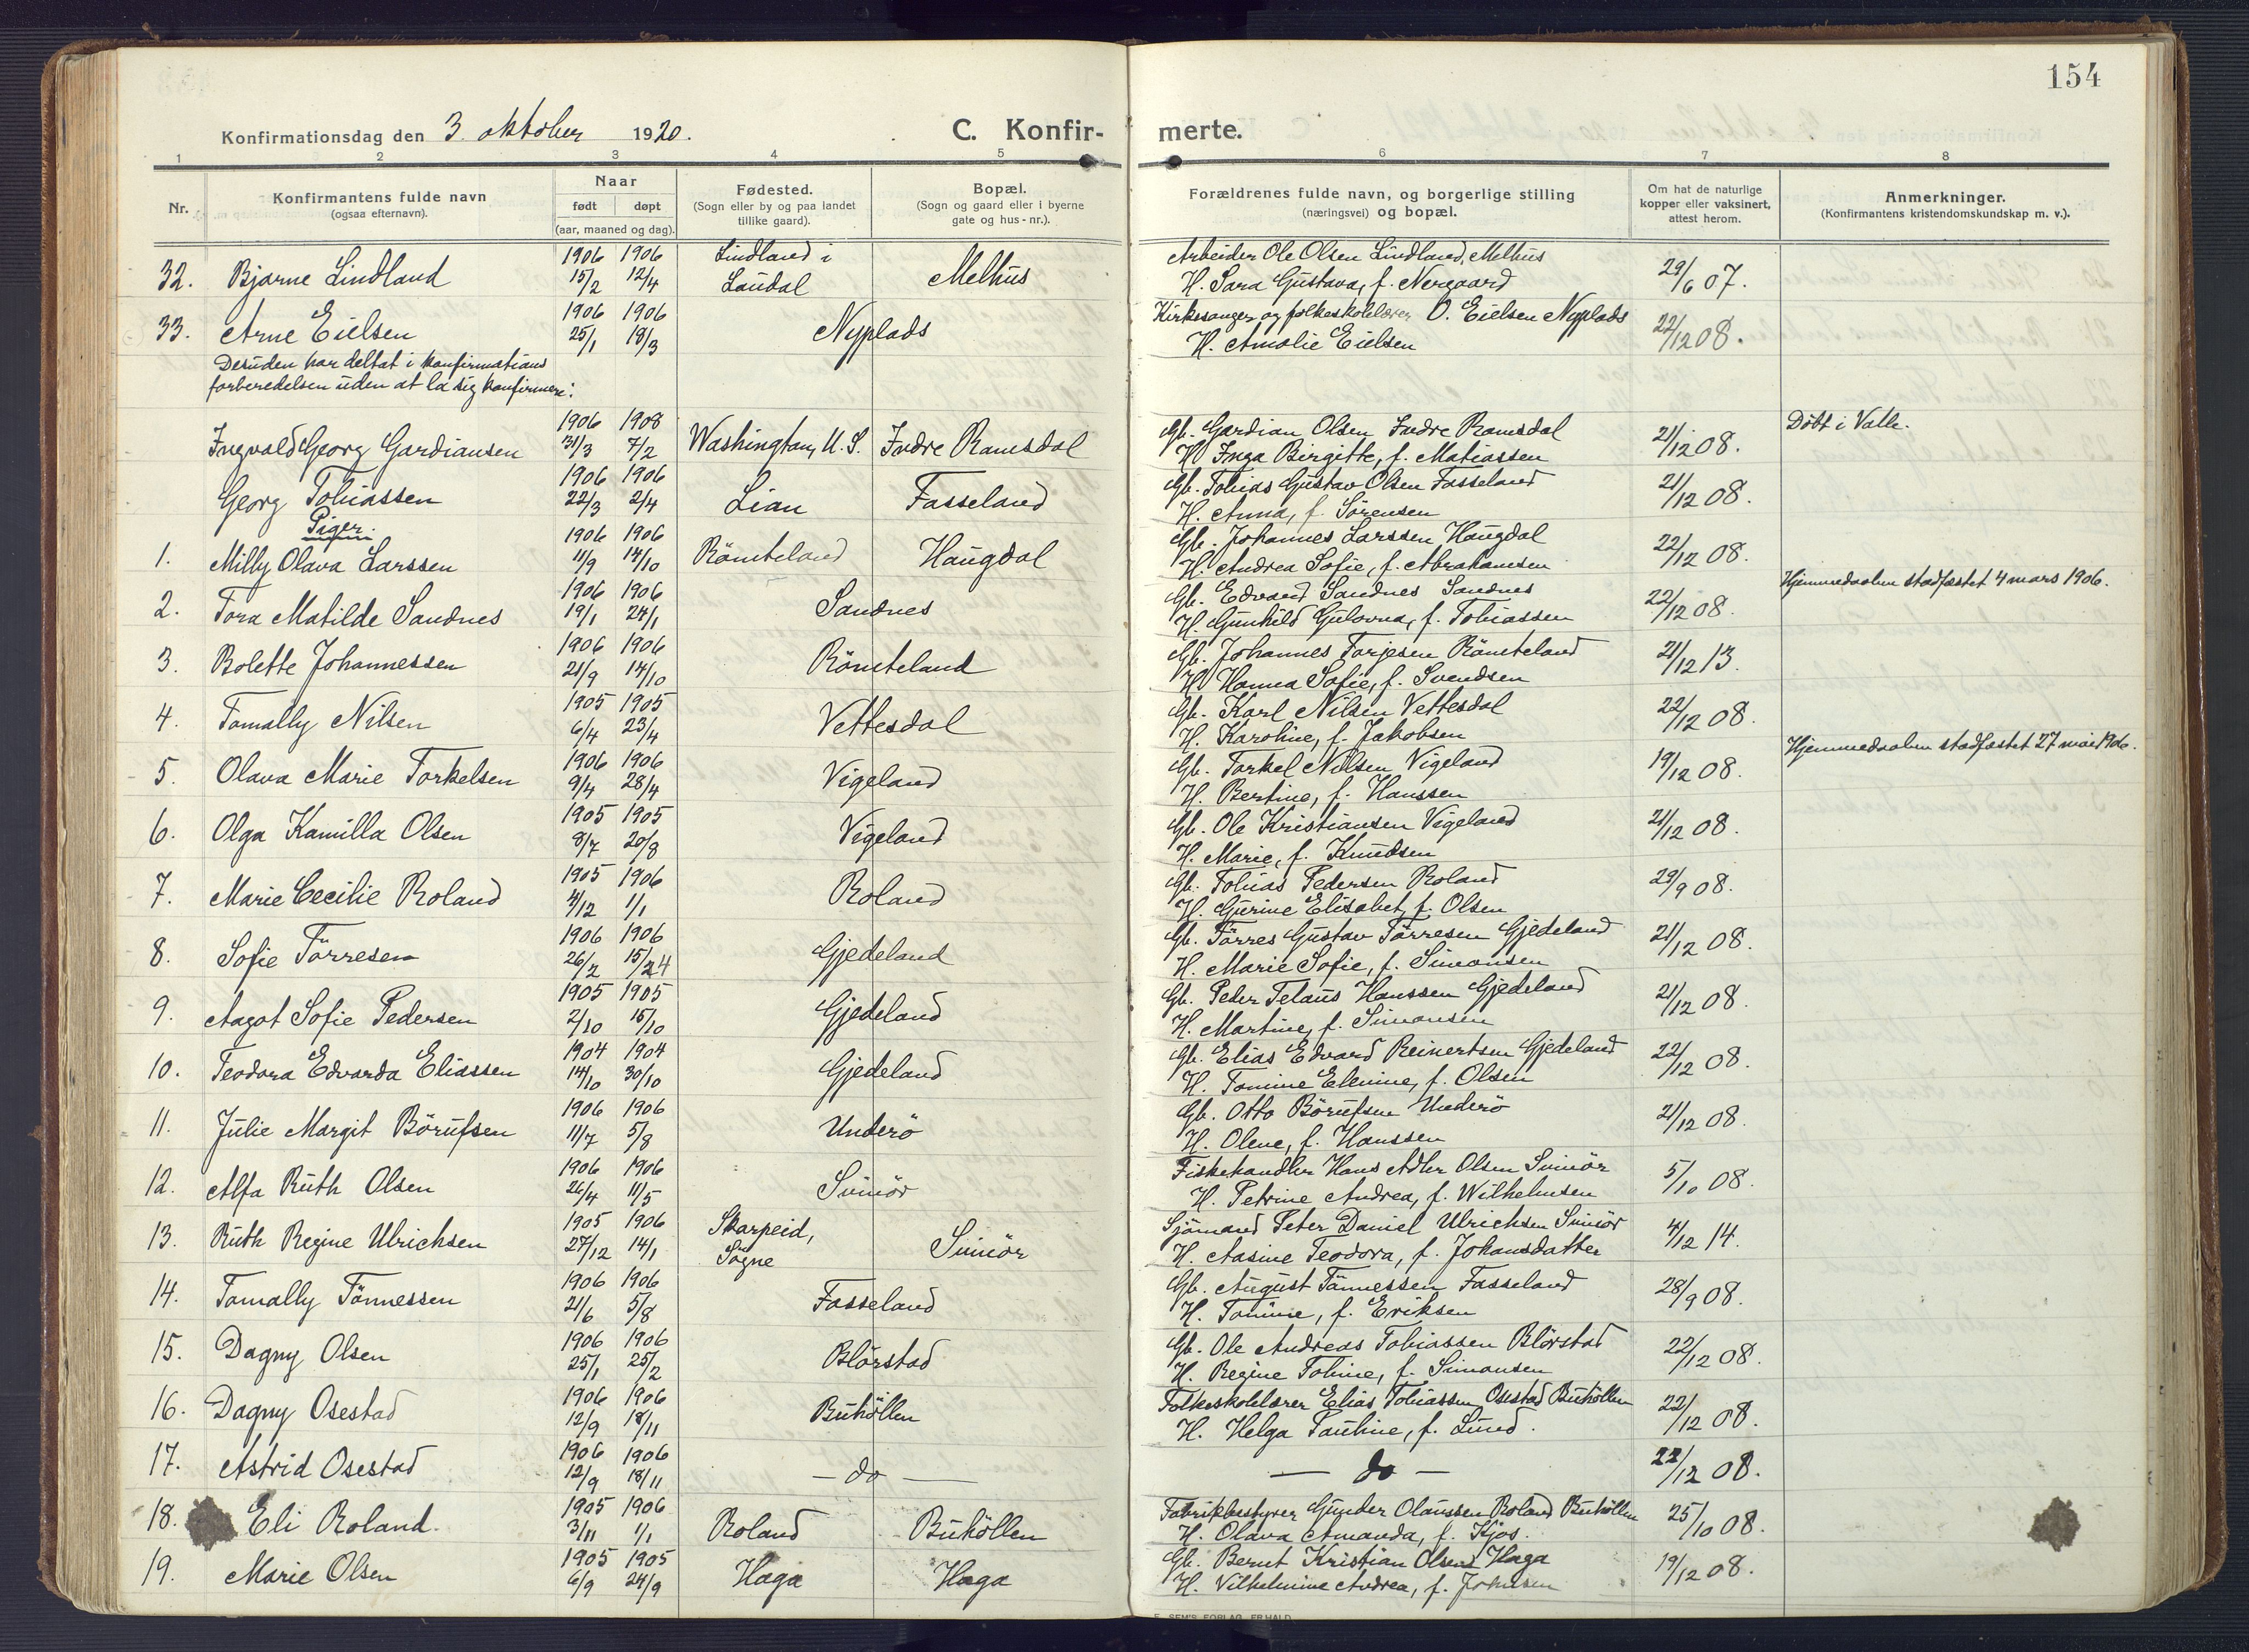 154
Konfirmationsdag den 3. oktober 1920. C. Konfir- merte.
1 2 3 4 5 6 7 8
Nr. Konfirmantens fulde navn (ogsaa efternavn). Naar født døpt (aar, maaned og dag). Fødested. (Sogn eller by og paa landet tillike gaard). Bopæl. (Sogn og gaard eller i byerne gate og hus-nr.). Forældrenes fulde navn, og borgerlige stilling (næringsvei) og bopæl. Om hat de naturlige kopper eller vaksinert, attest herom. Anmerkninger. (Konfirmantens kristendomskundskap m. v.).
1906 1906 Lindland i Arbeider Ole Olsen Lindland, Melhus
32. Bjarne Lindland 15/2 12/4 Laudal Melhus H. Sara Gustava, f. Nergaard 29/6 07.
1906 1906 Kirkesanger og folkeskolelærer O. Eielsen Nyplads
33. Arne Eielsen 25/1 18/3 Nyplads H. Amalie Eielsen 22/12 08.
Desuden har deltat i konfirmations
forberedelsen uden at la sig konfirmere:
1906 1908 Gb. Gardian Olsen Indre Ramsdal Döbt i Valle.
Ingvald Georg Gardiansen 31/3 7/2 Washington, U. S. Indre Ramsdal H. Inga Birgitte, f. Matiassen 21/12 08.
1906 1906 Gb. Tobias Gustav Olsen Fasseland
Georg Tobiassen 22/3 2/4 Lian Fasseland H. Anna, f. Sörensen 21/12 08.
Piger.
1906 1906 Gb. Johannes Larssen Haugdal
1. Milly Olava Larssen 11/9 14/10 Römteland Haugdal H. Andrea Sofie, f. Abrahamsen 22/12 08.
1906 1906 Gb. Edvard Sandnes Sandnes Hjemmedaaben stadfæstet 4 mars 1906.
2. Tora Matilde Sandnes 19/1 24/1 Sandnes H. Gunhild Gulovna, f. Tobiassen 22/12 08.
1906 1906 Gb. Johannes Torjesen Römteland
3. Bolette Johannessen 21/9 14/10 Römteland H. Hanna Sofie, f. Svendsen 21/12 13.
1905 1905 Gb. Karl Nilsen Vettesdal
4. Tomally Nilsen 6/4 23/4 Vettesdal H. Karoline, f. Jakobsen 22/12 08.
1906 1906 Gb. Torkel Nilsen Vigeland Hjemmedaaben stadfæstet 27 mai 1906.
5. Olava Marie Torkelsen 9/4 28/4 Vigeland H. Bertine, f. Hanssen 19/12 08.
1905 1905 Gb. Ole Kristiansen Vigeland
6. Olga Kamilla Olsen 8/7 20/8 Vigeland H. Marie, f. Knudsen 21/12 08.
1905 1906 Gb. Tobias Pedersen Roland
7. Marie Cecilie Roland 4/12 1/1 Roland H. Gurine Elisabet, f. Olsen 29/9 08.
1906 1906 Gb. Törres Gustav Törresen Gjedeland
8. Sofie Törresen 26/2 15/4 Gjedeland H. Marie Sofie, f. Simonsen 21/12 08.
1905 1905 Gb. Peder Telaus Hanssen Gjedeland
9. Aagot Sofie Pedersen 2/10 15/10 Gjedeland H. Martine, f. Simonsen 21/12 08.
1904 1904 Gb. Elias Edvard Reinertsen Gjedeland
10. Teodora Edvarda Eliassen 14/10 30/10 Gjedeland H. Tomine Elenine, f. Olsen 22/12 08.
1906 1906 Gb. Otto Börufsen Underö
11. Julie Margit Börufsen 11/7 5/8 Underö H. Olene, f. Hanssen 21/12 08.
1906 1906 Fiskehandler Hans Adler Olsen Svinör
12. Alfa Ruth Olsen 26/4 11/5 Svinör H. Petrine Andrea, f. Wilhelmsen 5/10 08.
1905 1906 Skarpeid, Sjömand Peter Daniel Ulrichsen Svinör
13. Ruth Regine Ulrichsen 27/12 14/1 Sögne Svinör H. Aasine Teodora, f. Johansdatter 4/12 14.
1906 1906 Gb. August Tönnessen Fasseland
14. Tomally Tönnessen 21/6 5/8 Fasseland H. Tomine, f. Eriksen 28/9 08.
1906 1906 Gb. Ole Andreas Tobiassen Blörstad
15. Dagny Olsen 25/1 25/2 Blörstad H. Regine Tobine, f. Simonsen 22/12 08.
1906 1906 Folkeskolelærer Elias Tobiassen Osestad Buhöllen
16. Dagny Osestad 12/9 18/11 Buhöllen H. Helga Pauline, f. Lund. 22/12 08.
1906 1906
17. Astrid Osestad 12/9 18/11 — do — — do — 22/12 08.
1905 1906 Fabrikbestyrer Gunder Olaussen Roland Buhöllen
18. Eli Roland. 3/11 1/1 Roland Buhöllen H. Olava Amanda, f. Kjos. 25/10 08.
1905 1905 Gb. Bernt Kristian Olsen Haga
19. Marie Olsen 6/9 24/9 Haga Haga H. Vilhelmine Andrea, f. Johnsen 19/12 08.